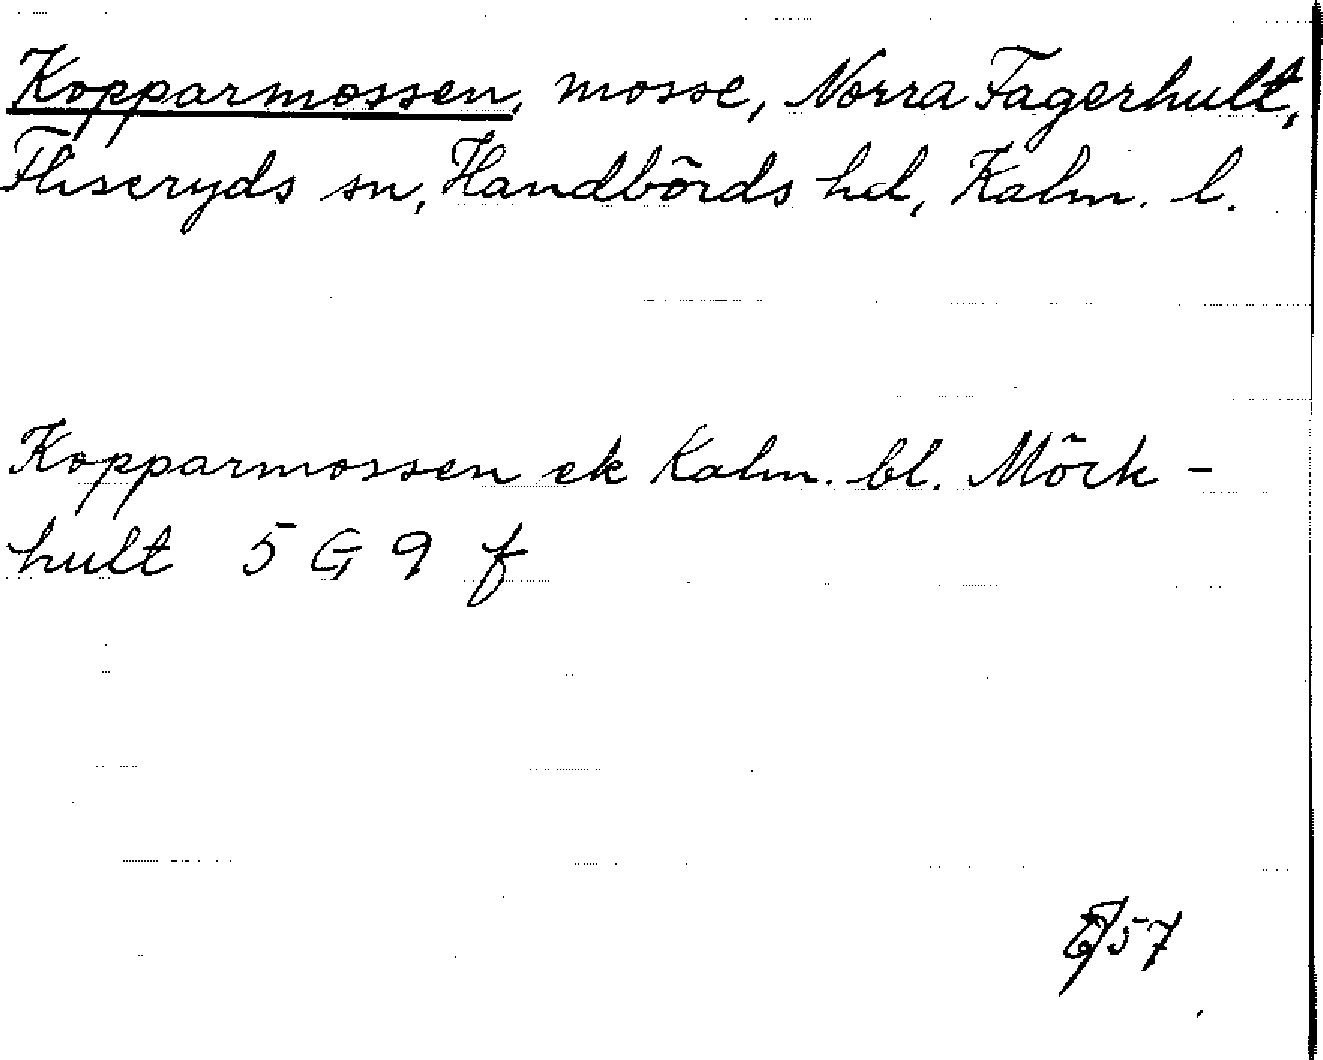 Kopparmossen, mosse, Norra Fagerhult,
Fliseryds sn, Handbörds hd, Kalm. l.
Kopparmossen ek Kalm. bl. Mörk-
hult 5 G 9 f
57